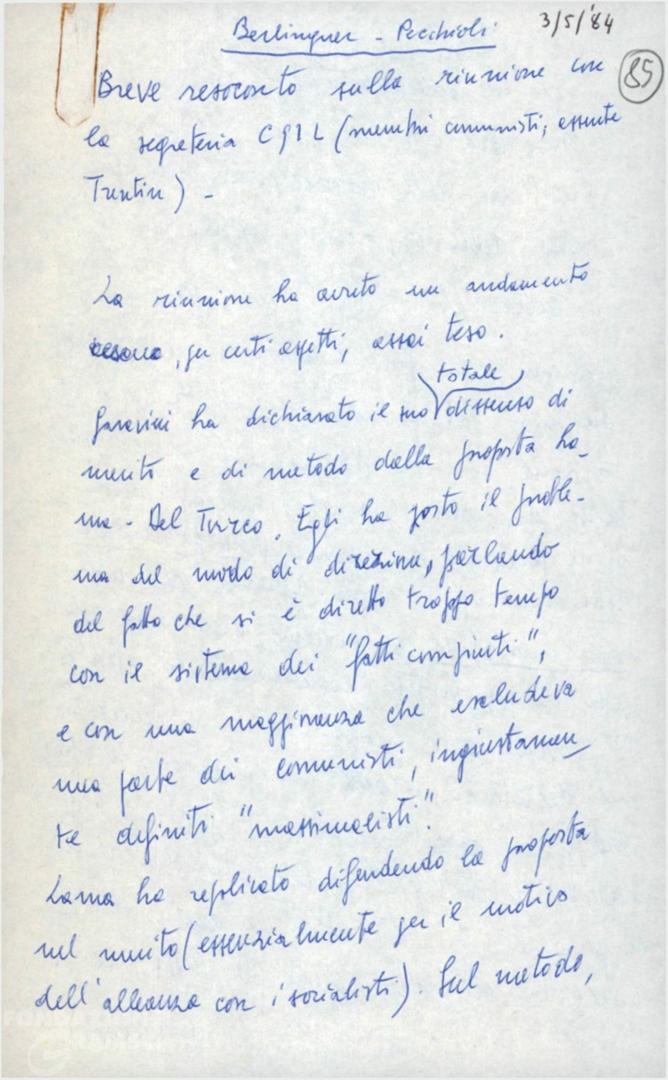 Berlinguer - Pecchioli
3/5/'84
85
Breve resoconto sulla riunione con
la segreteria CGIL (membri comunisti; assente
Trentin) -
La riunione ha avuto un andamento
, per certi aspetti, assai teso.
totale
Garavini ha dichiarato il suo dissenso di
merito e di metodo dalla proposta La_
ma - Del Turco. Egli ha posto il proble-
ma del modo di direzione, parlando
del fatto che si è diretto troppo tempo
con il sistema dei "fatti compiuti",
e con una maggioranza che escludeva
una parte dei comunisti, ingiustamen_
te definiti "massimalisti".
Lama ha replicato difendendo la proposta
nel merito (essenzialmente per il motivo
dell'alleanza con i socialisti). Sul metodo,